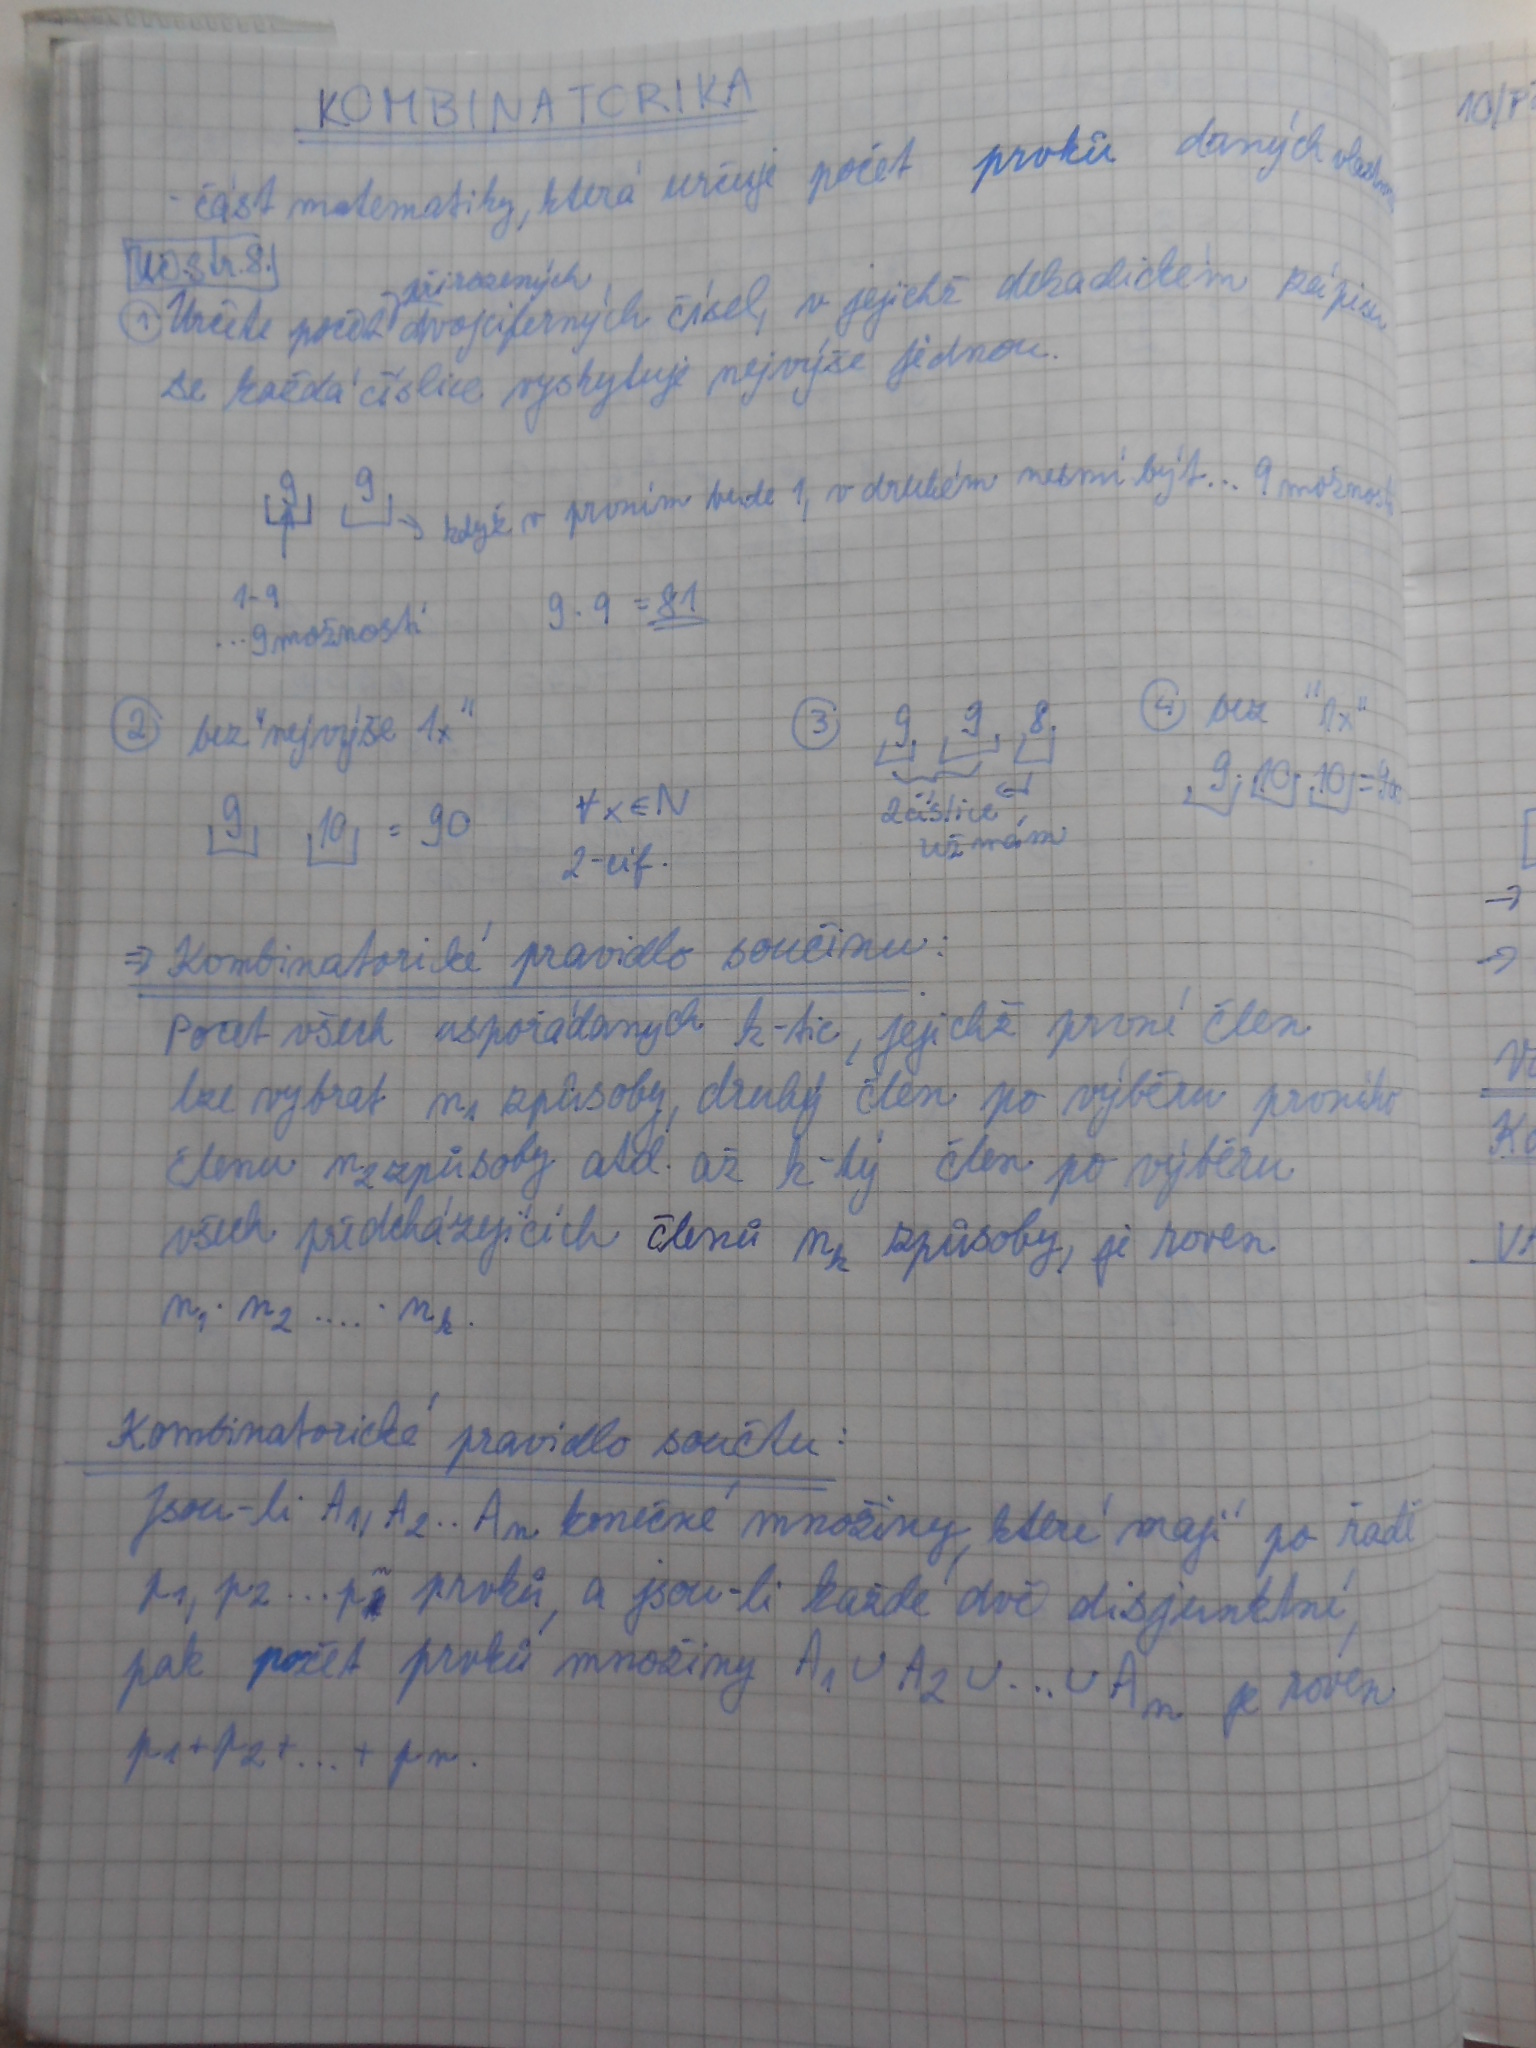 KOMBINATORIKA
- část matematiky, která určuje počet prvků daných
str. 8.
přirozených
1 Určete počet dvojciferných čísel, v jejichž dekadickém zápisu
se každá číslice vyskytuje nejvýše jednou.
9 9 → když v prvním bude 1, v druhém nesmí být... 9 možností
1-9
...9 možností 9 · 9 = 81
2 bez "nejvýše 1x" 3 9 9 8 4 bez "1x"
9 10 = 90 ∀x∈N 2číslice 9 · 10 · 10 = 900
2-cif. už mám
⇒ Kombinatorické pravidlo součinu:
Počet všech uspořádaných k-tic, jejichž první člen
lze vybrat n1 způsoby, druhý člen po výběru prvního
členu n2 způsoby atd. až k-tý člen po výběru
všech předcházejících členů nk způsoby, je roven
n1 · n2 .... · nk.
Kombinatorické pravidlo součtu:
Jsou-li A1, A2 .. An konečné množiny, které mají po řadě
p1, p2 ... pn prvků, a jsou-li každé dvě disjunktní,
pak počet prvků množiny A1 ∪ A2 ∪ ... ∪ An je roven
p1 + p2 + ... + pn.
10/
→
→